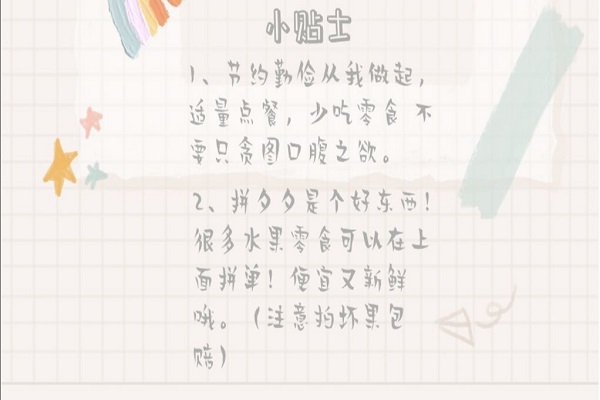 小贴士
1、节约勤俭从我做起，
适量点餐，少吃零食 不
要只贪图口腹之欲。
2、拼夕夕是个好东西！
很多水果零食可以在上
面拼单！便宜又新鲜
哦。（注意拍坏果包
赔）